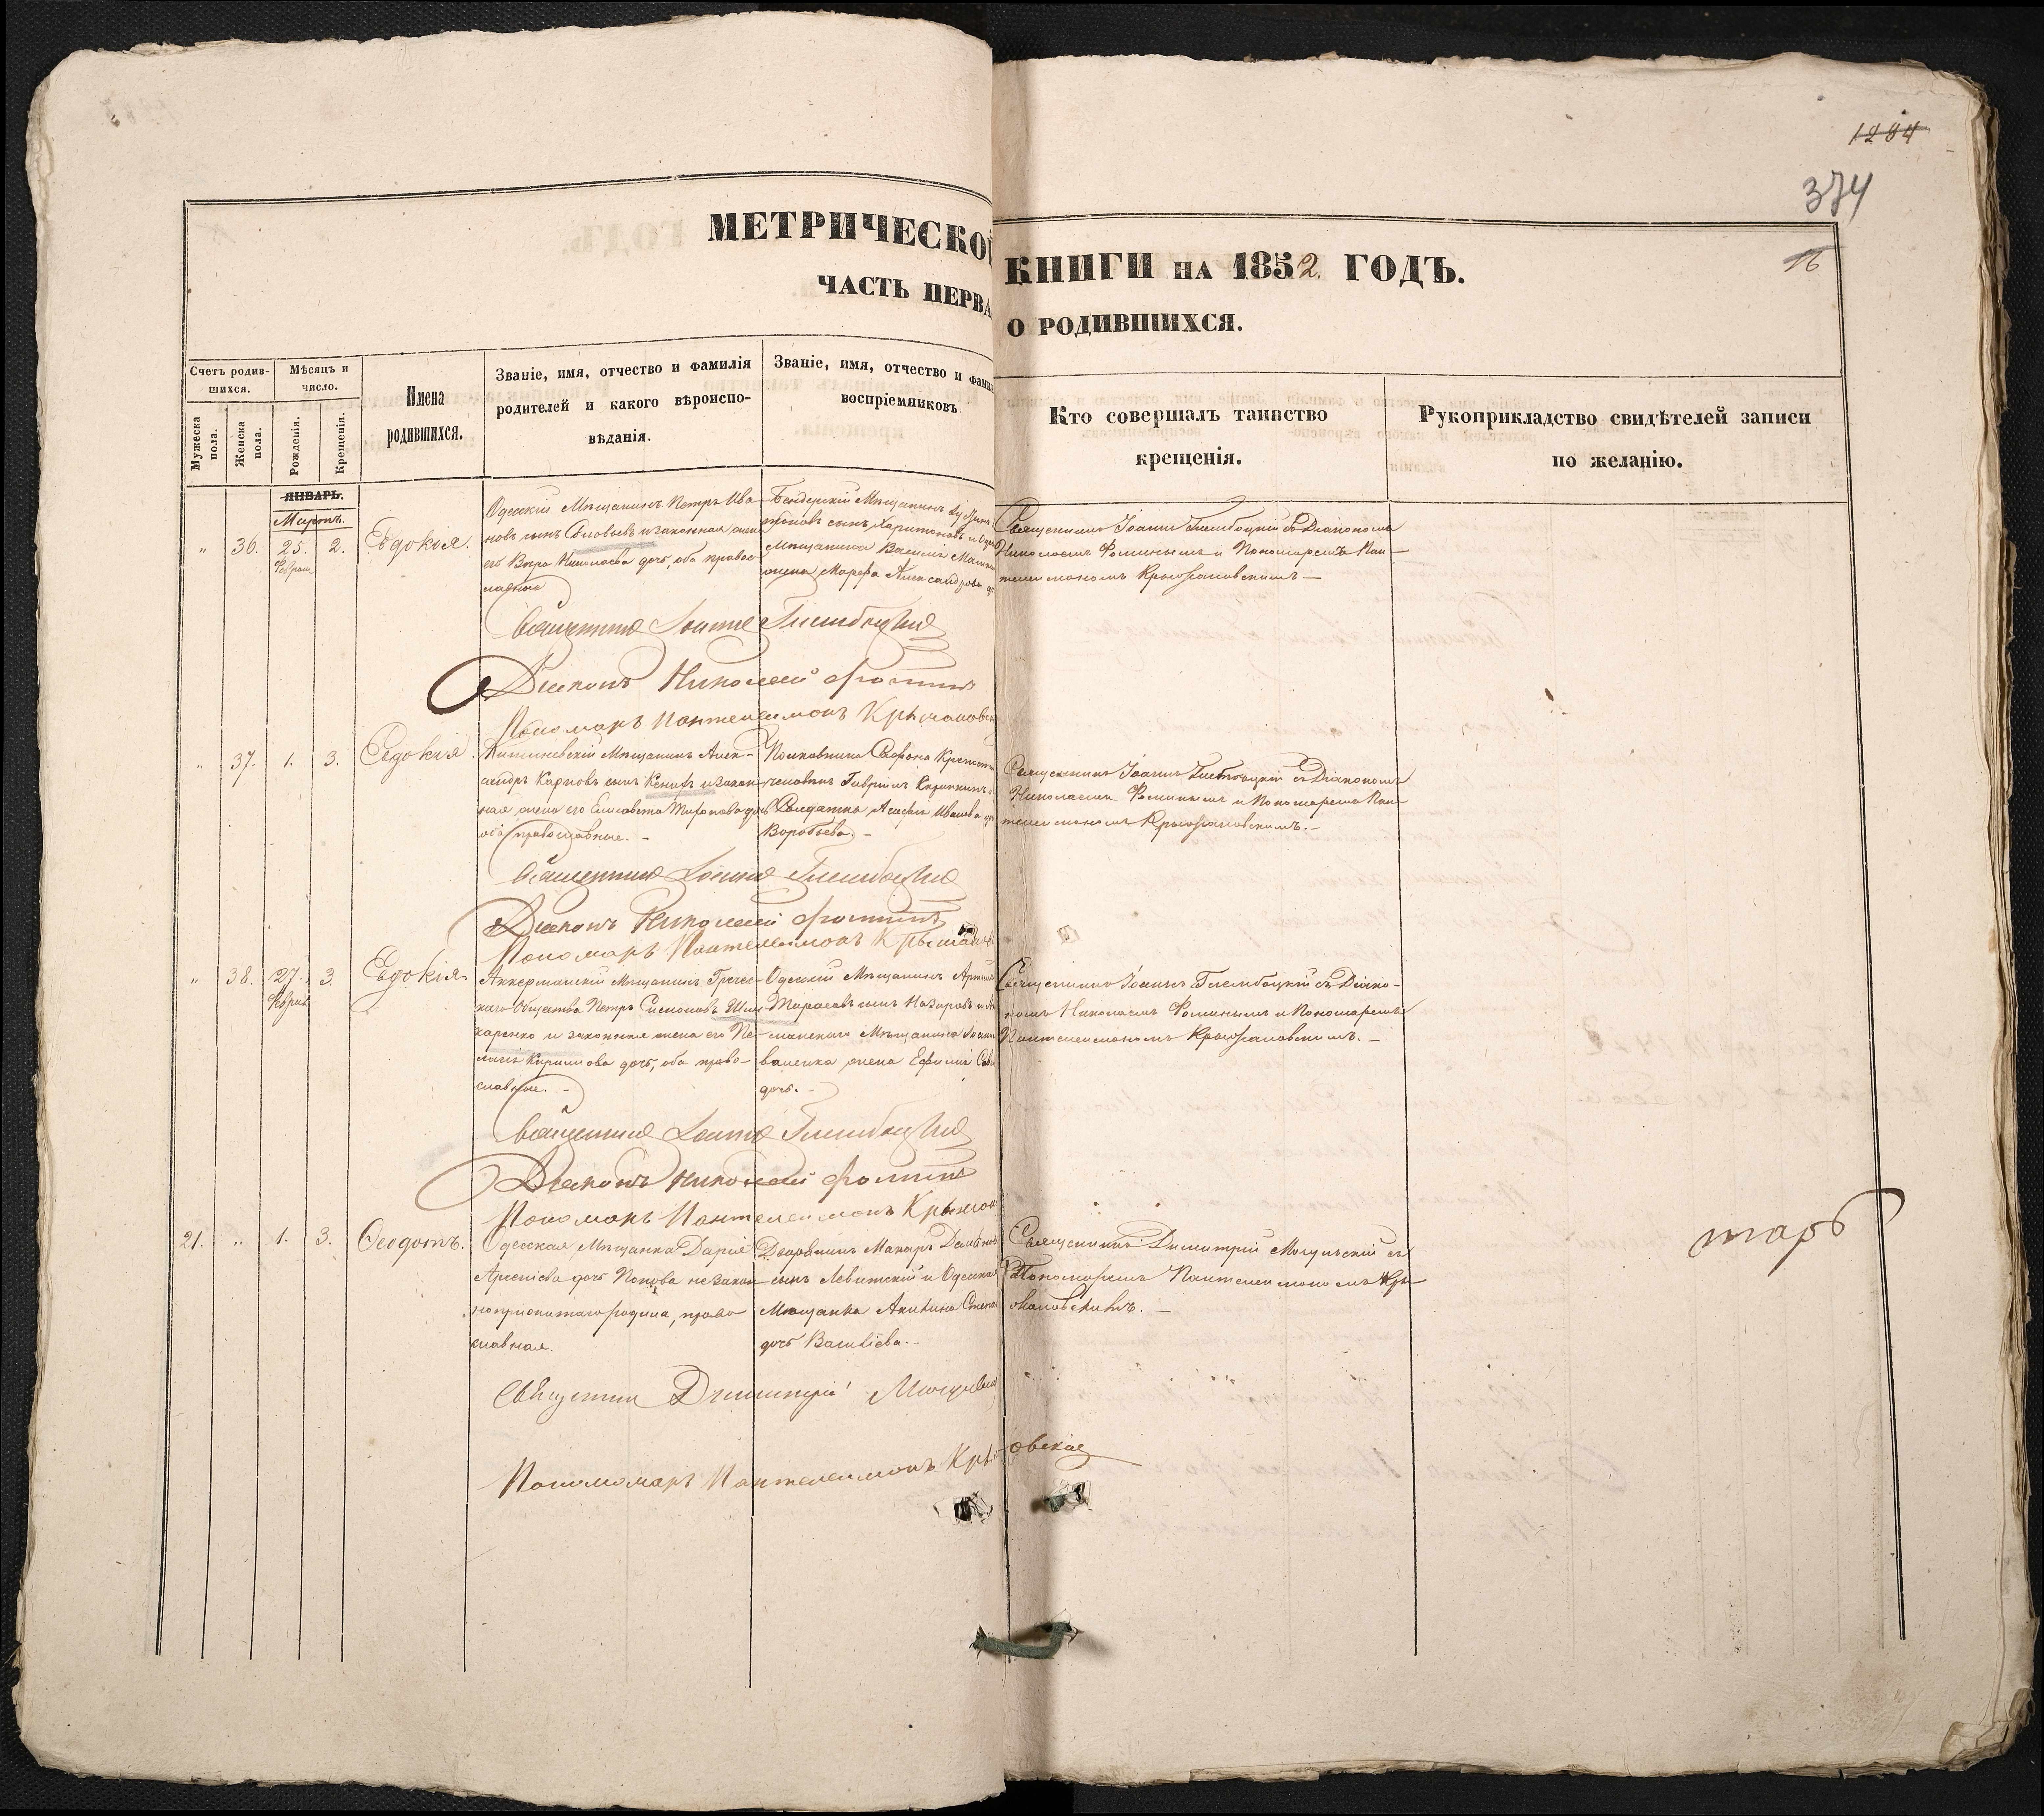 1204
374
16
МЕТРИЧЕСКОЙ КНИГИ НА 1852 ГОДЪ.
ЧАСТЬ ПЕРВА О РОДИВШИХСЯ.
Счетъ родив-
шихся.
Мужеска пола.
Женска пола.
Мѣсяцъ и
число.
Рожденія.
Крещенія.
Имена
родившихся.
Званіе, имя, отчество и фамилія
родителей и какого вѣроиспо-
вѣданія.
Званіе, имя, отчество и фами
воспріемниковъ.
Кто совершалъ таинство
крещенія.
Рукоприкладство свидѣтелей записи
по желанію.
ЯНВАРЬ.
Мартъ.
„ 36. 25. Феврал 2. Евдокія.
Одесскій Мѣщанинъ Петръ Ива-
новъ сынъ Соловьевъ и законная жена
его Вѣра Николаева дочь, оба правос-
лавные
Бендерскій Мѣщанинъ
сынъ Харитоновъ и
Мѣщанина Василія
жена Марфа Александрова
Священникъ Іоаннъ Глембоцкій съ Діакономъ
Николаемъ Фоминымъ и Пономаремъ Пан-
телеимономъ Крыжановскимъ —
Священникъ Іоаннъ Глембоцкій
Діаконъ Николай Фоминъ
Пономарь Пантелеимонъ Крыжановс
„ 37. 1. 3. Евдокія
Кишиневскій Мѣщанинъ Алек-
сандръ Карповъ сынъ и закон-
ная жена его Елисавета дочь
оба православные. -
Полковника Крепост
человѣкъ Гавріилъ
Солдатка Ивановa
Воробьева. -
Священникъ Іоаннъ Глембоцкій съ Діакономъ
Николаемъ Фоминымъ и Пономаремъ Пан-
телеимономъ Крыжановскимъ. -
Священникъ Іоаннъ Глембоцкій
Діаконъ Николай Фоминъ
Пономарь Пантелеимонъ
„ 38. 27. Феврал 3. Евдокія
Аккерманскій Мѣщанинъ Гречес-
каго Общества Петръ Симоновъ
каренко и законная жена его Пе-
лагія Кирилова дочь, оба право-
славные. -
Одесскій Мѣщанинъ
Тарасовъ сынъ Назаровъ и
манскаго Мѣщанина
жена Ефимія
дочь. -
Священникъ Іоаннъ Глембоцкій съ Діако-
номъ Николаемъ Фоминымъ и Пономаремъ
Пантелеимономъ Крыжановскимъ. -
Священникъ Іоаннъ Глембоцкій
Діаконъ Николай Фоминъ
Пономарь Пантелеимонъ
21. „ 1. 3. Ѳеодотъ.
Одесская Мѣщанка Дарія
Арсеніева дочь Попова незакон-
но прижитаго родила, право
славная.
Дворянинъ Макаръ
сынъ Левитскій и Одесская
Мѣщанка Акилина
дочь Василіева. -
Священникъ Димитрій съ
Пономаремъ Пантелеимономъ Кры-
жановскимъ. -
мартъ
Священникъ Димитрій
Пономарь Пантелеимонъ